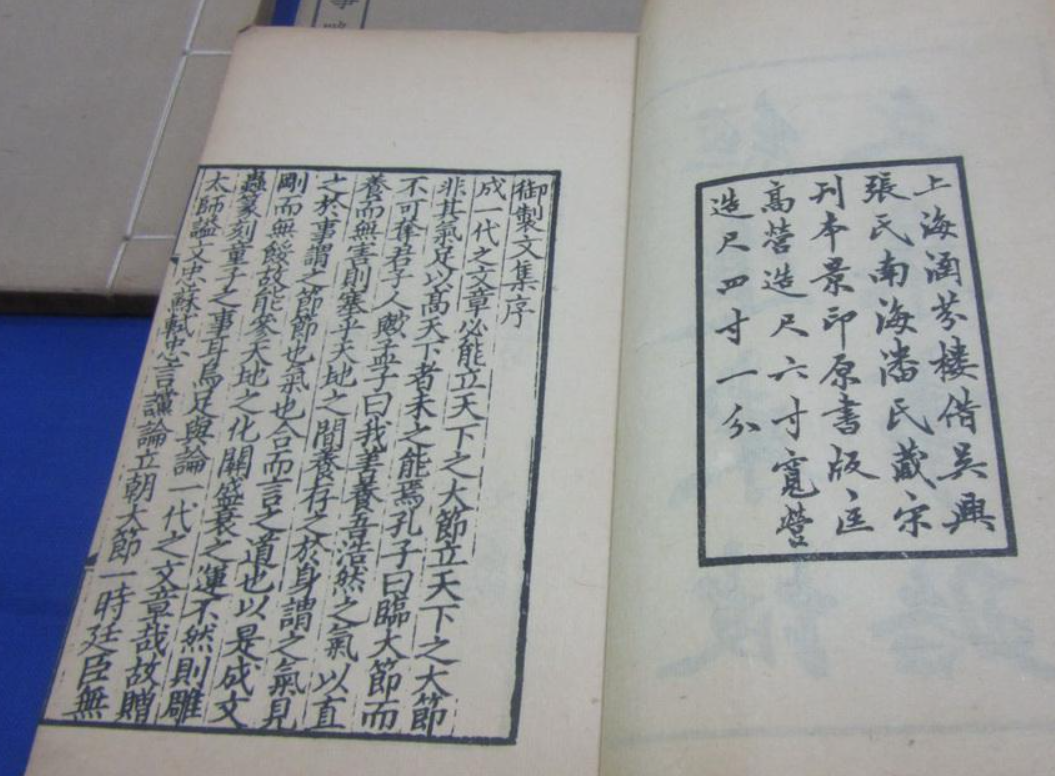 上海涵芬樓借吳興
張氏南海潘氏藏宋
刊本景印原書版匡
高營造尺六寸寬營
造尺四寸一分
御製文集序
成一代之文章必能立天下之大節立天下之大節
非其氣足以高天下者未之能焉孔子曰臨大節而
不可奪君子人歟孟子曰我善養吾浩然之氣以直
養而無害則塞乎天地之間養存之於身謂之氣見
之於事謂之節節也氣也合而言之道也以是成文
剛而無餒故能參天地之化關盛衰之運不然則雕
蟲篆刻童子之事耳烏足與論一代之文章哉故贈
太師謚文忠蘇軾忠言讜論立朝大節一時廷臣無